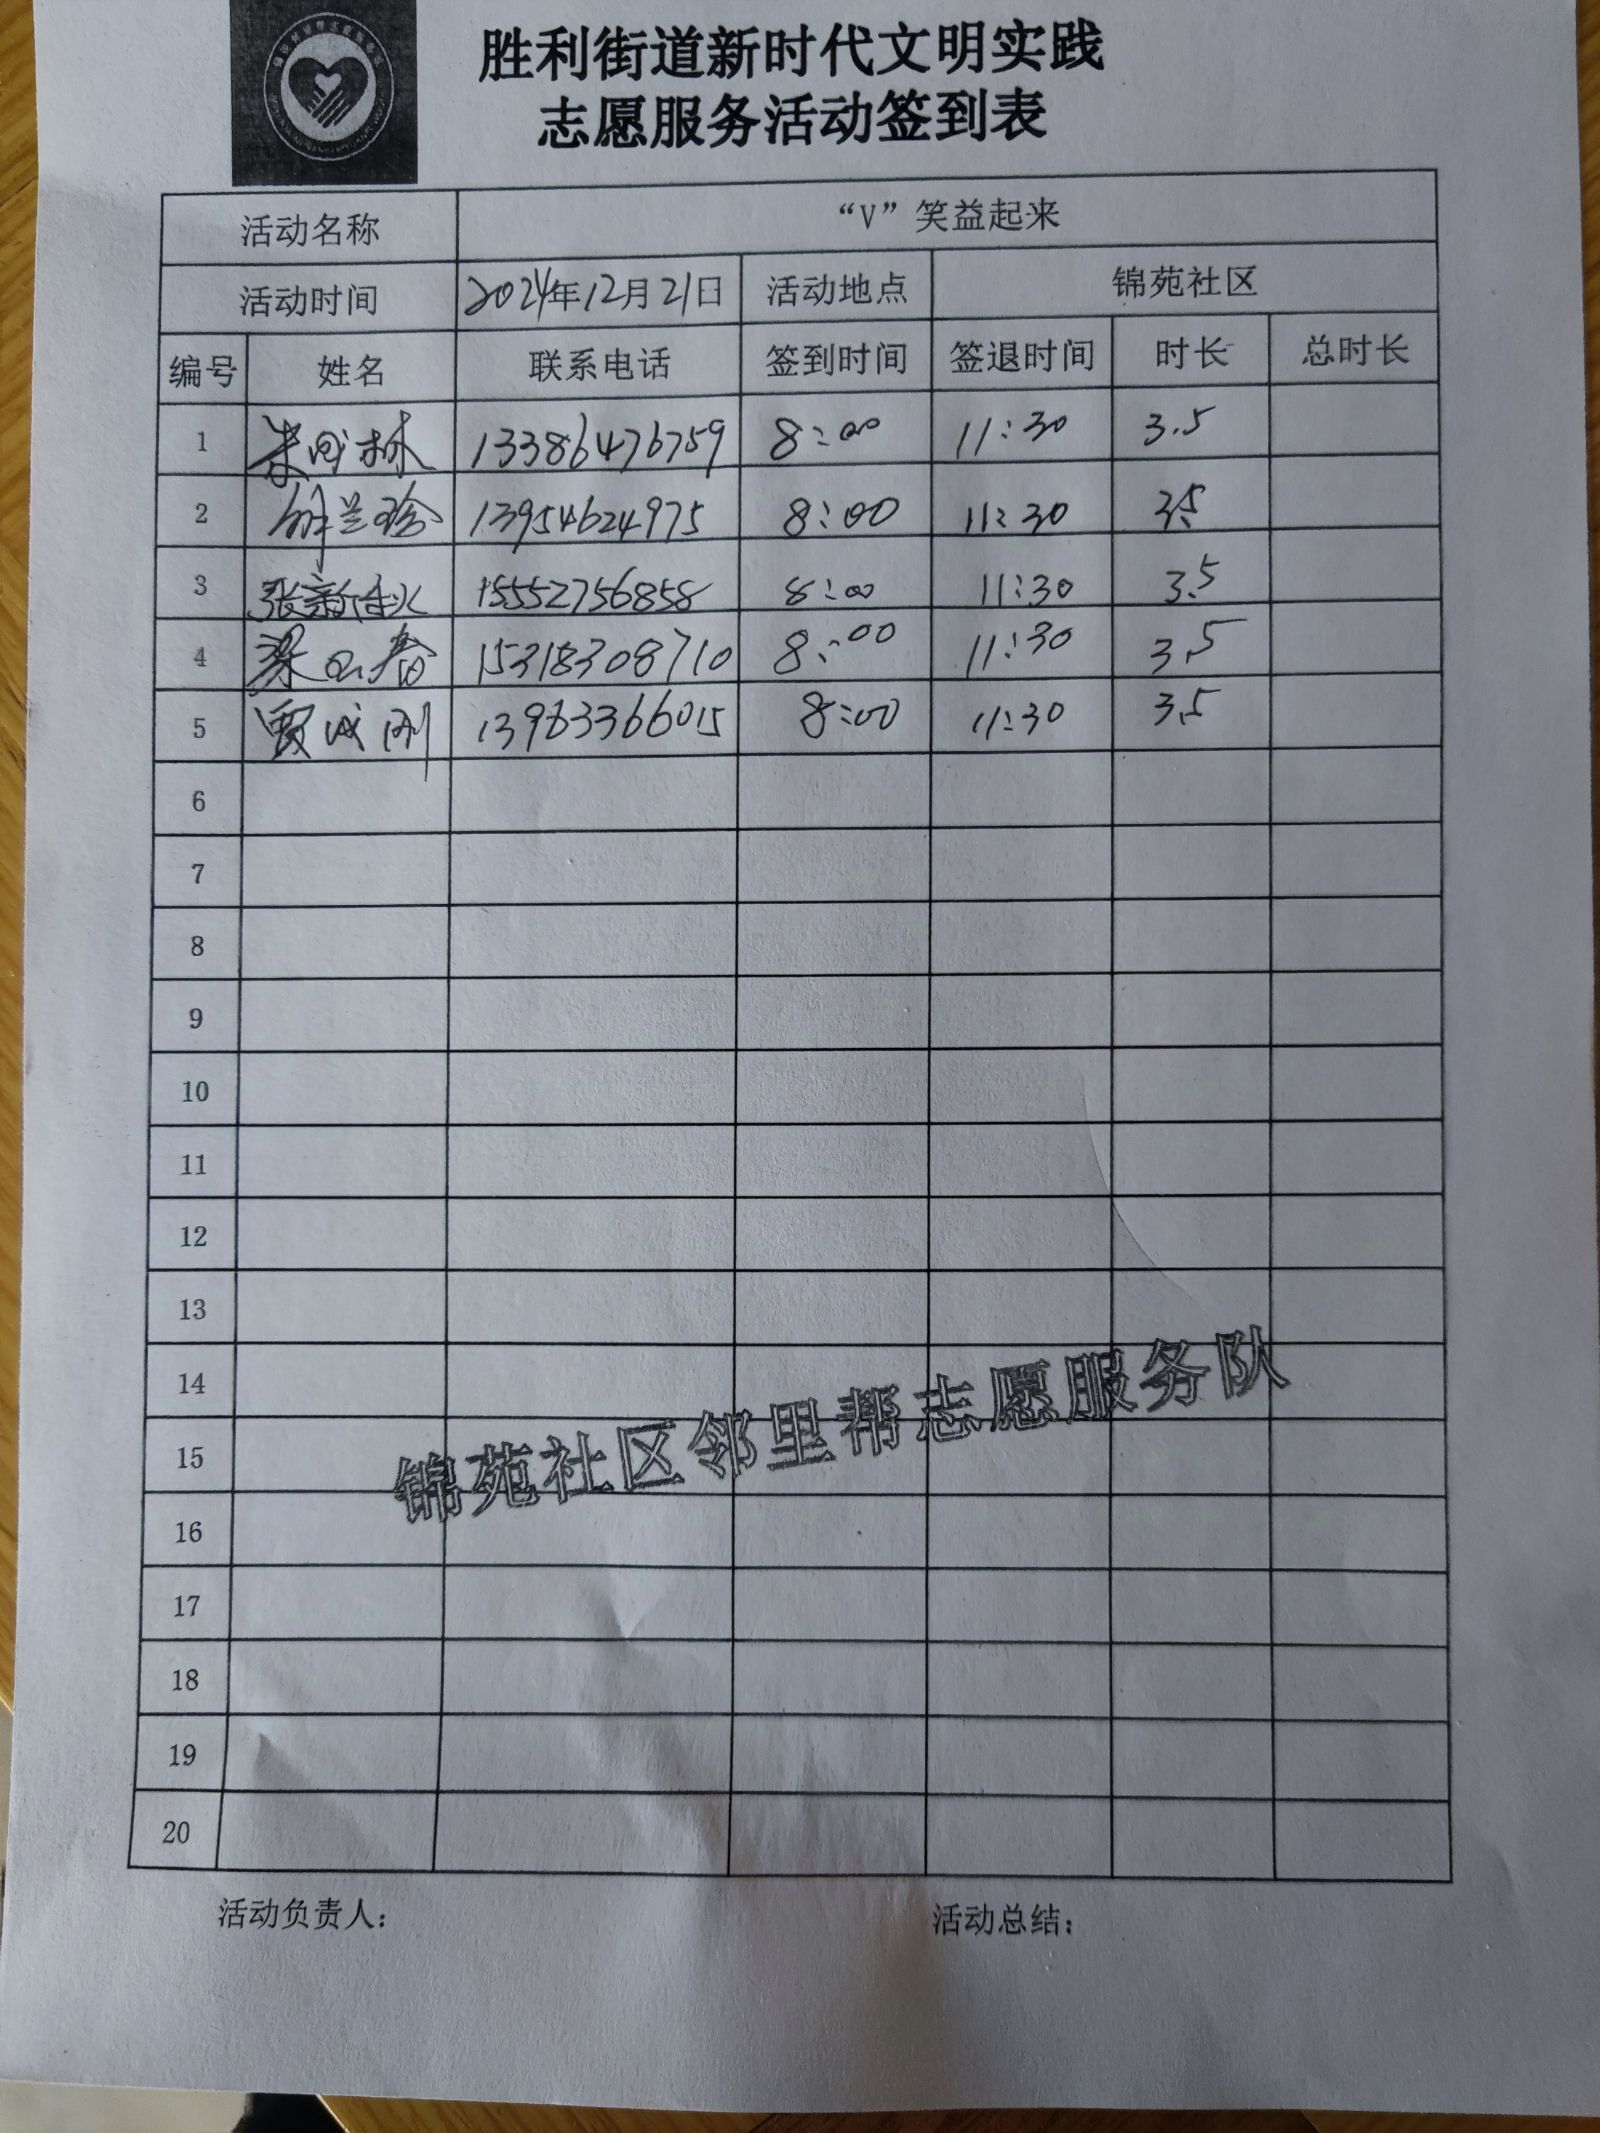 胜利街道新时代文明实践
志愿服务活动签到表
活动名称 “V”笑益起来
活动时间 2024年12月21日 活动地点 锦苑社区
编号 姓名 联系电话 签到时间 签退时间 时长 总时长
1 林 13386476759 8:00 11:30 3.5
2 兰珍 13954624975 8:00 11:30 3.5
3 张新秋 15552756858 8:00 11:30 3.5
4 梁春 15318308710 8:00 11:30 3.5
5 贾成刚 13963366015 8:00 11:30 3.5
6
7
8
9
10
11
12
13
14
15
16
17
18
19
20
锦苑社区邻里帮志愿服务队
活动负责人: 活动总结: